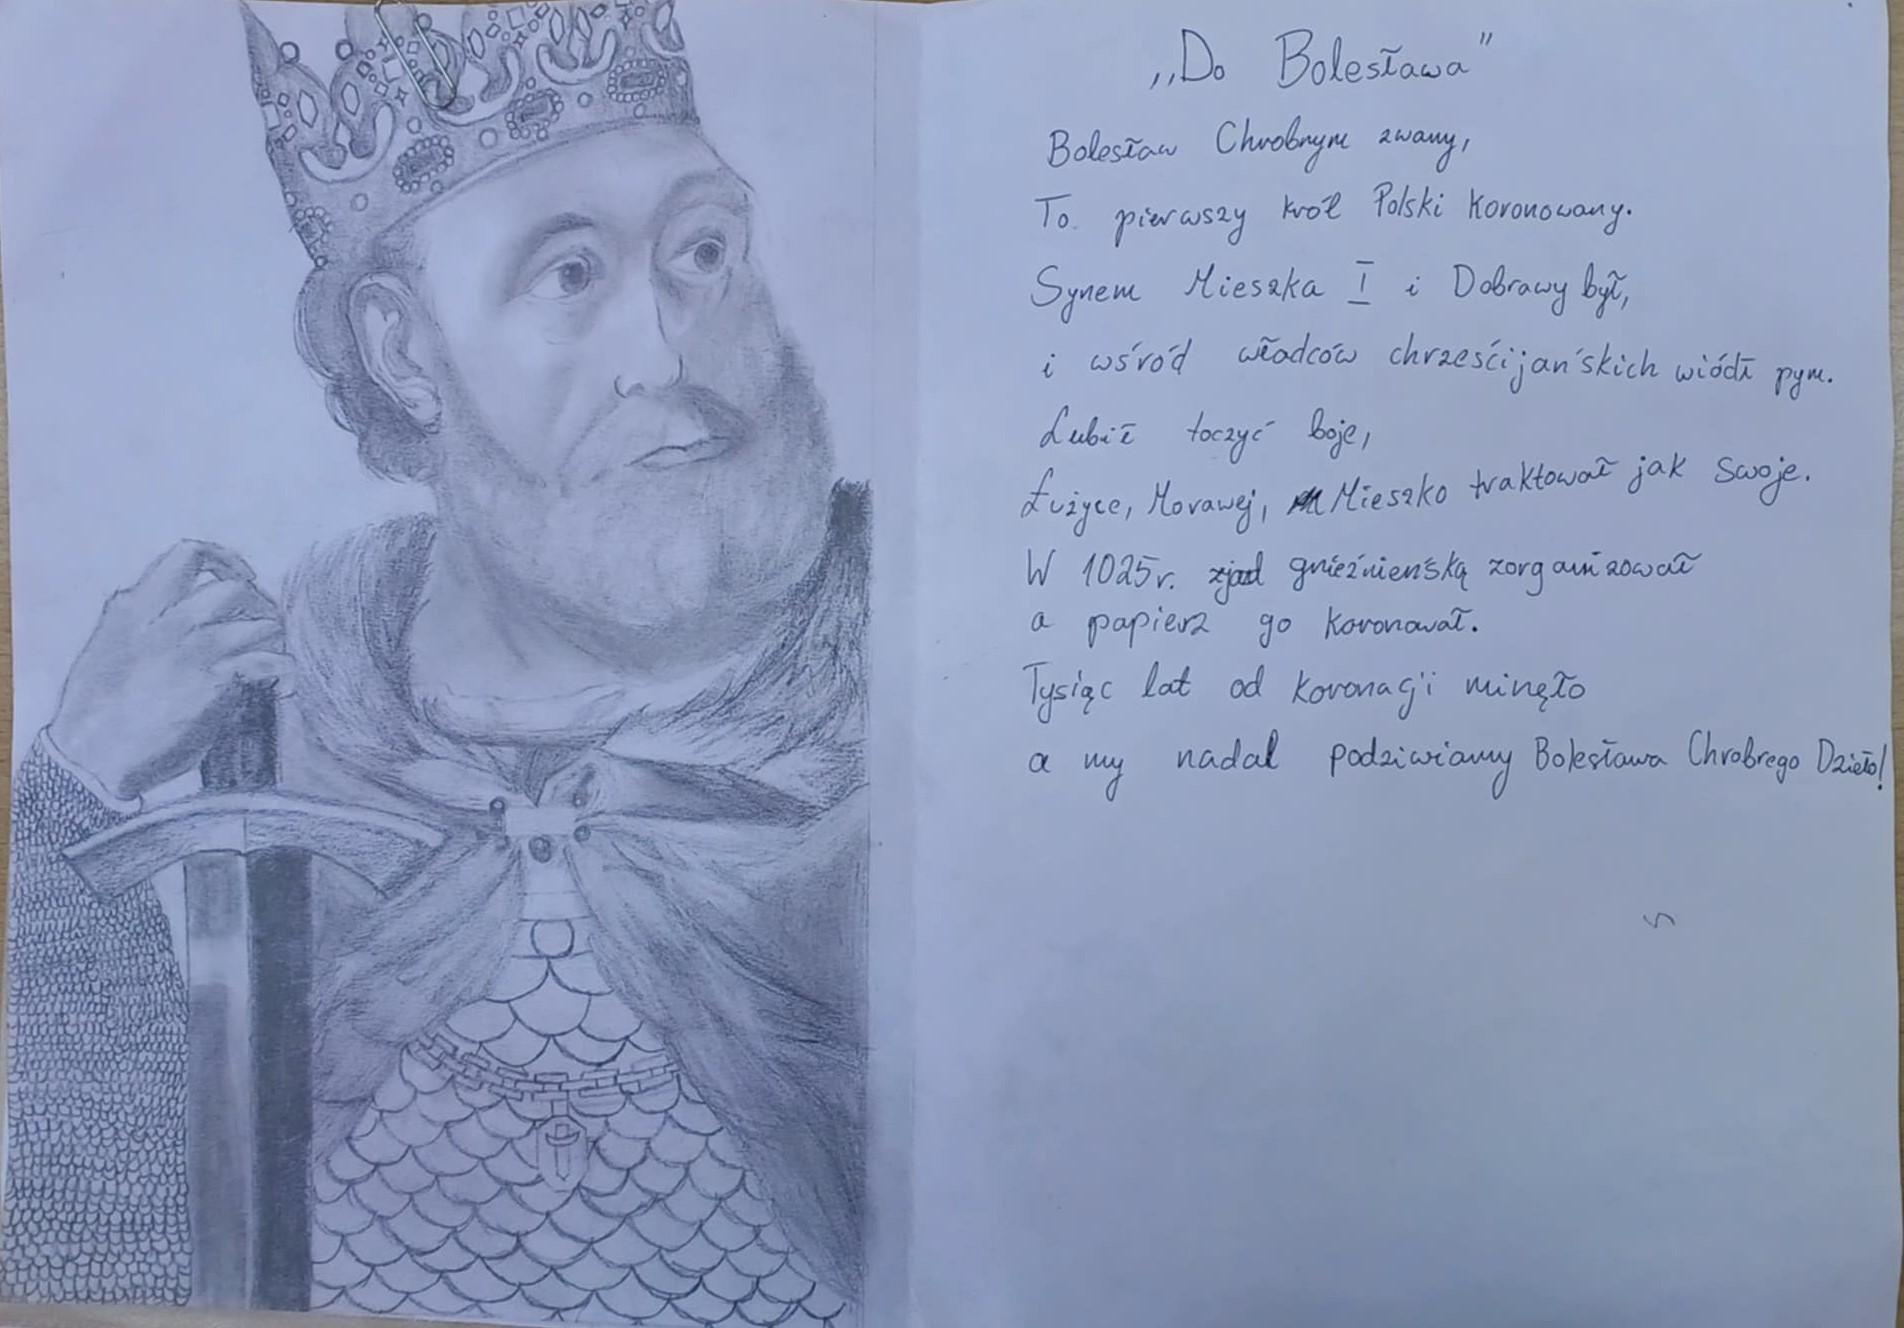 „Do Bolesława"
Bolesław Chrobrym zwany,
To pierwszy król Polski koronowany.
Synem Mieszka I i Dobrawy był,
i wśród władców chrześcijańskich wiódł pym.
Lubił toczyć boje,
Łużyce, Morawej, Mieszko traktował jak swoje.
W 1025r. zjad gnieźnieńską zorganizował
a papierz go koronował.
Tysiąc lat od koronacji minęło
a my nadal podziwiamy Bolesława Chrobrego Dzieło!